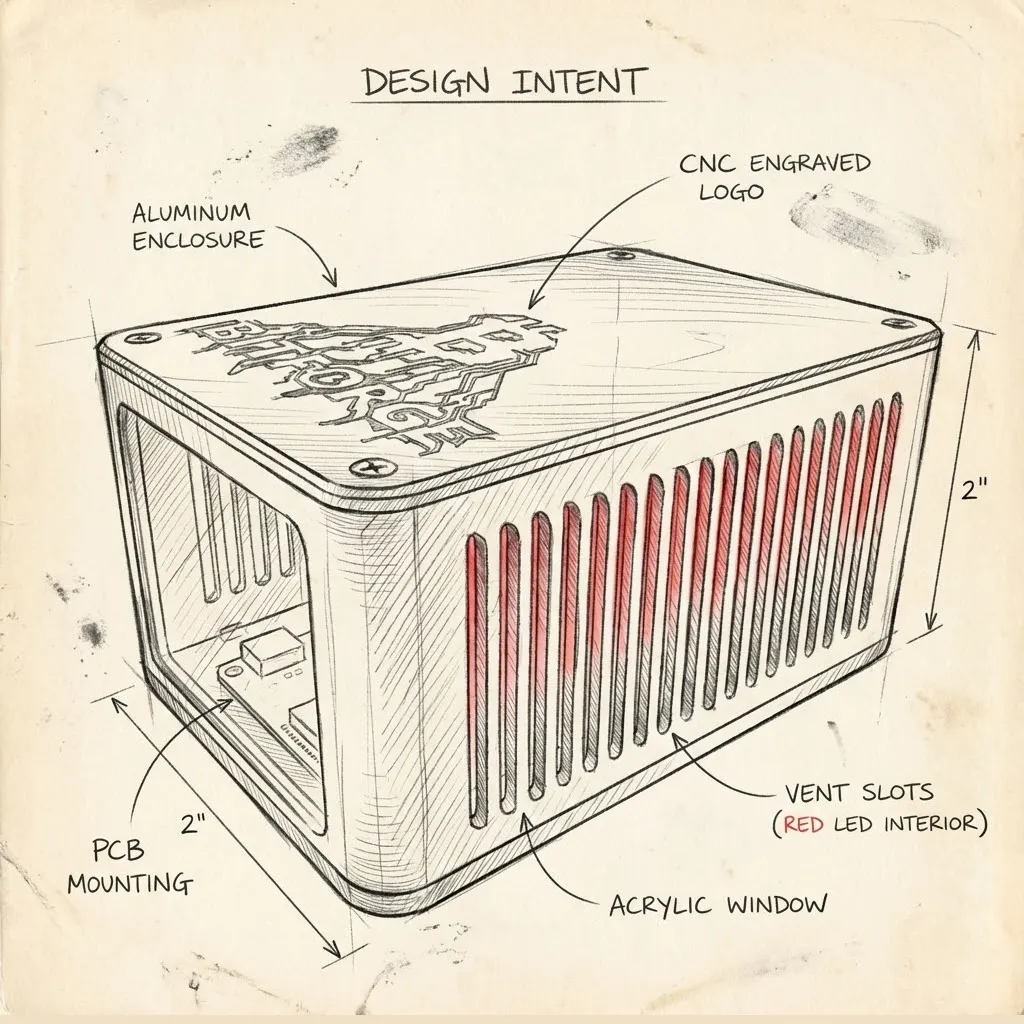 DESIGN INTENT
CNC ENGRAVED
LOGO
ALUMINUM
ENCLOSURE
2"
2"
PCB
MOUNTING
VENT SLOTS
(RED LED INTERIOR)
ACRYLIC WINDOW